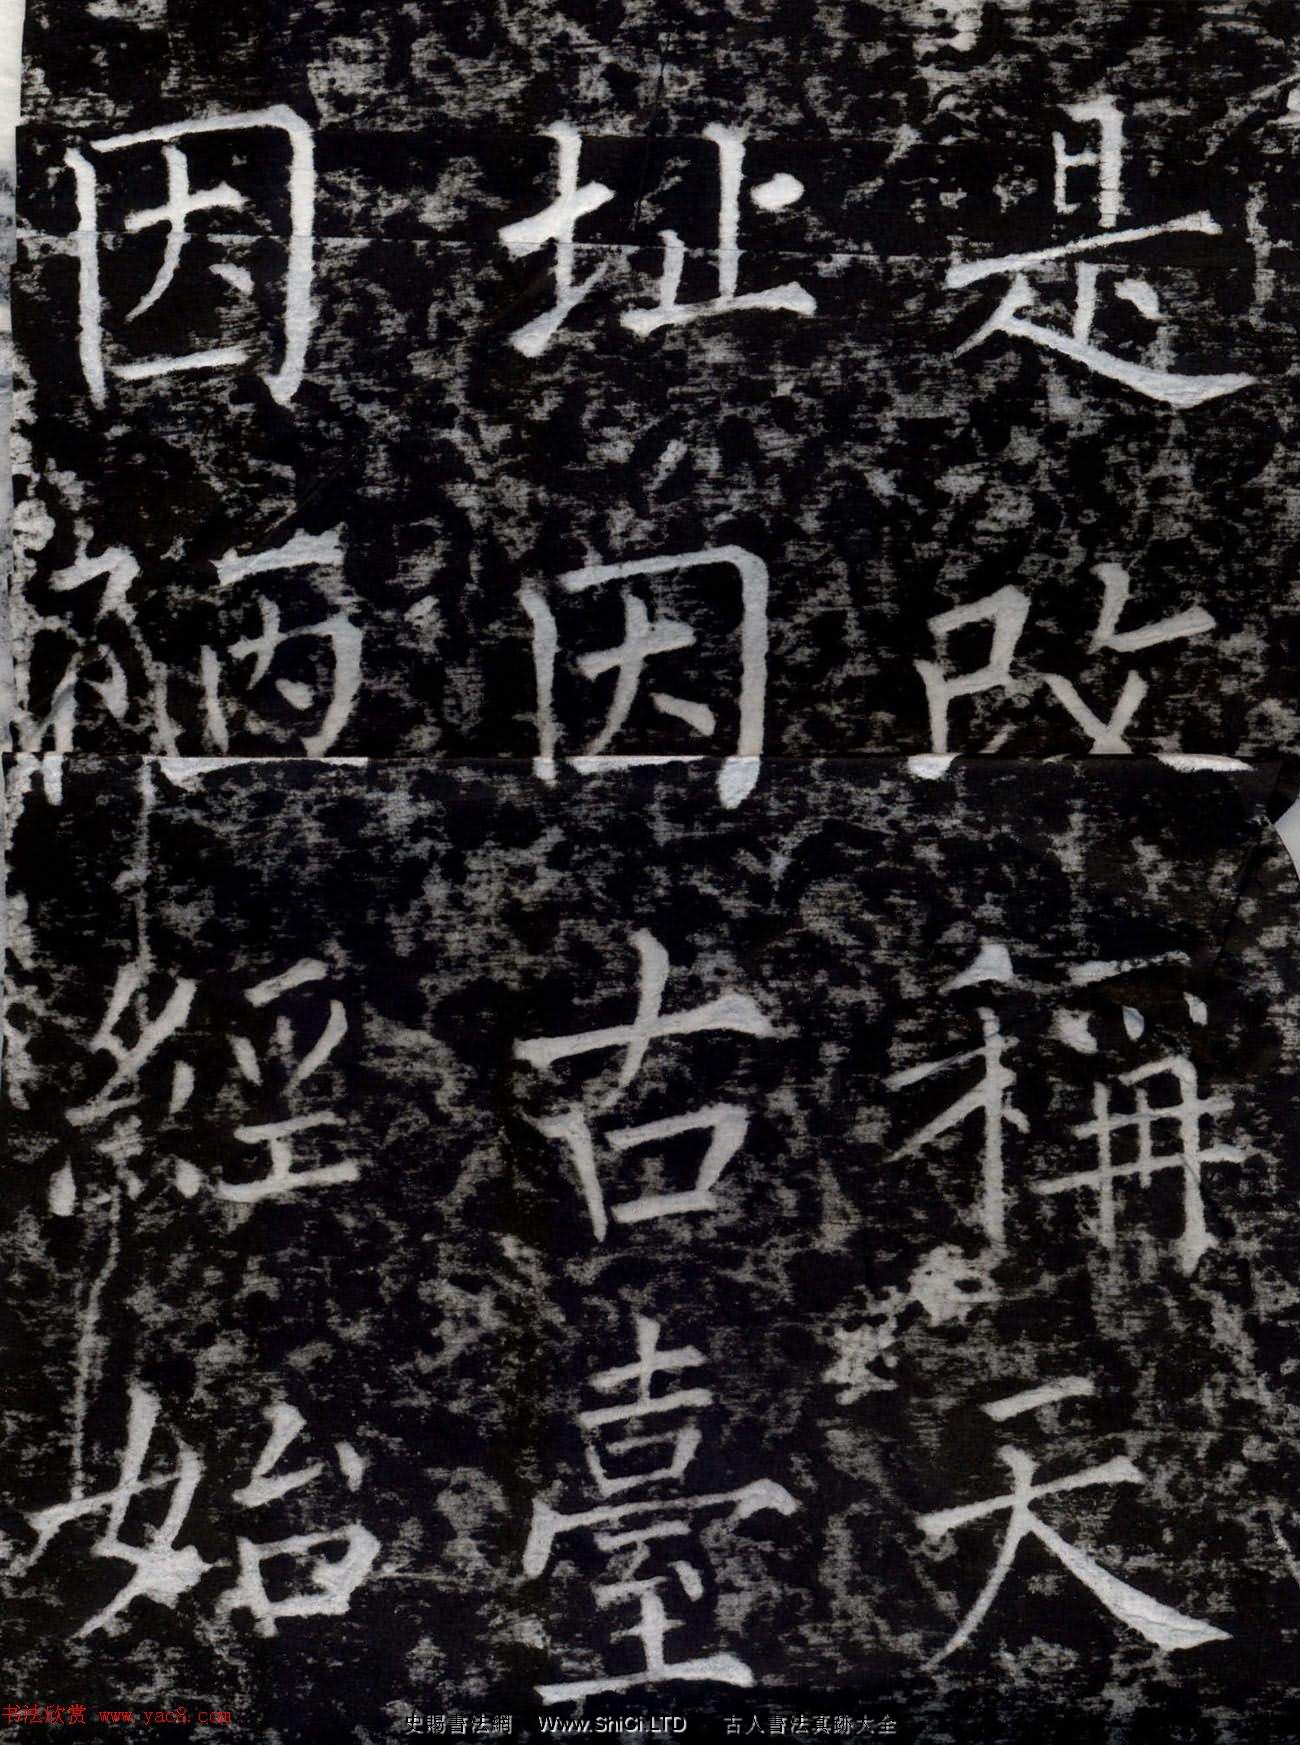 是改稱天
址因古臺
因經始
书法欣赏 www.yac8.com
史賜書法網 Www.ShiCi.LTD 古人書法真跡大全